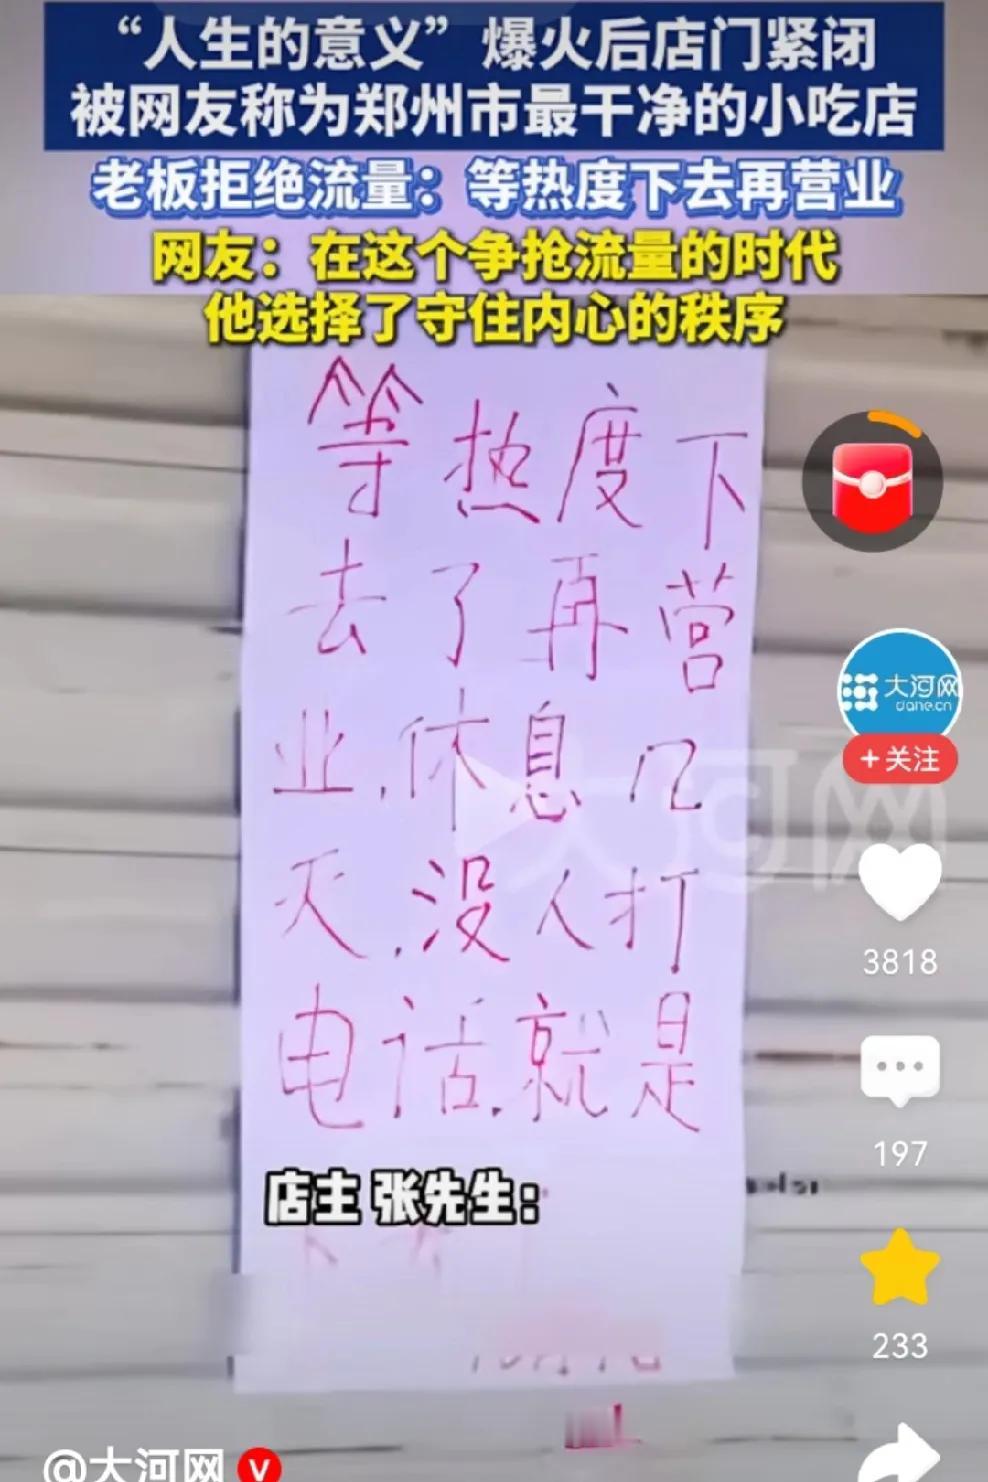 “人生的意义”爆火后店门紧闭
被网友称为郑州市最干净的小吃店
老板拒绝流量：等热度下去再营业
网友：在这个争抢流量的时代
他选择了守住内心的秩序
等热度下
去了再营
业,休息几
天,没人打
电话,就是
店主 张先生：
大河网
大河网
dahe.cn
+关注
3818
197
233
@大河网